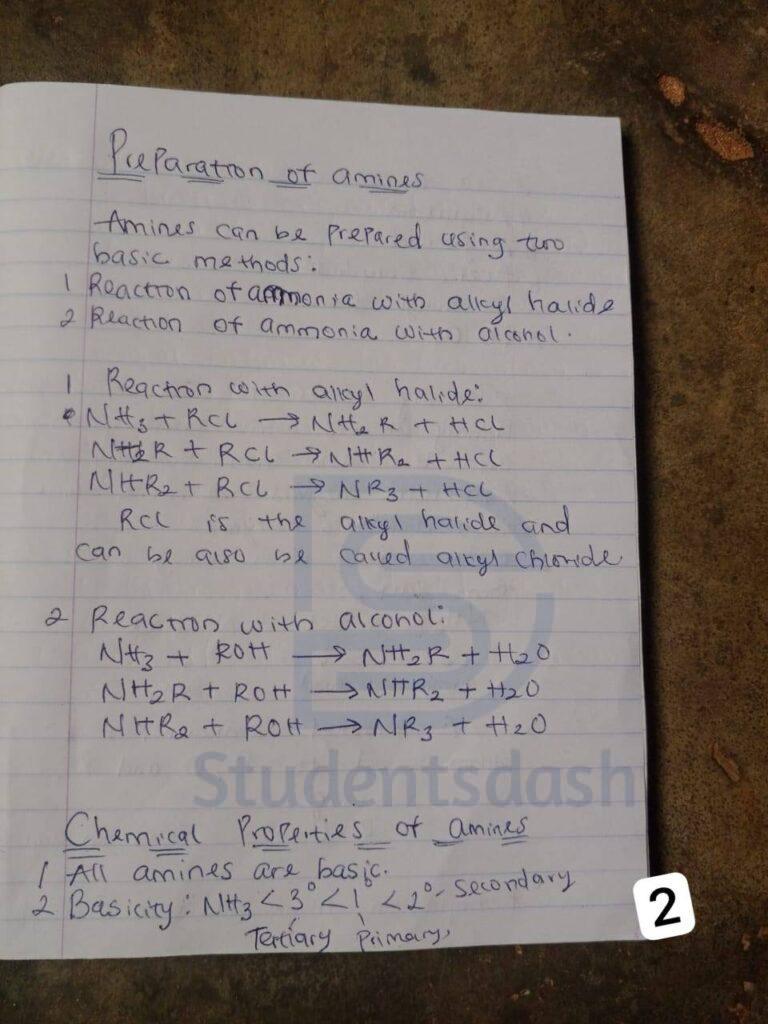 Preparation of amines
Amines can be prepared using two
basic methods:
1 Reaction of ammonia with alkyl halide
2 Reaction of ammonia with alcohol.
1 Reaction with alkyl halide:
NH3 + RCl → NH2R + HCl
NH2R + RCl → NHR2 + HCl
NHR2 + RCl → NR3 + HCl
RCl is the alkyl halide and
can be also be called alkyl chloride
2 Reaction with alcohol:
NH3 + ROH → NH2R + H2O
NH2R + ROH → NHR2 + H2O
NHR2 + ROH → NR3 + H2O
Studentsdash
Chemical Properties of amines
1 All amines are basic.
2 Basicity: NH3 < 3° < 1° < 2° - secondary
Tertiary Primary,
2